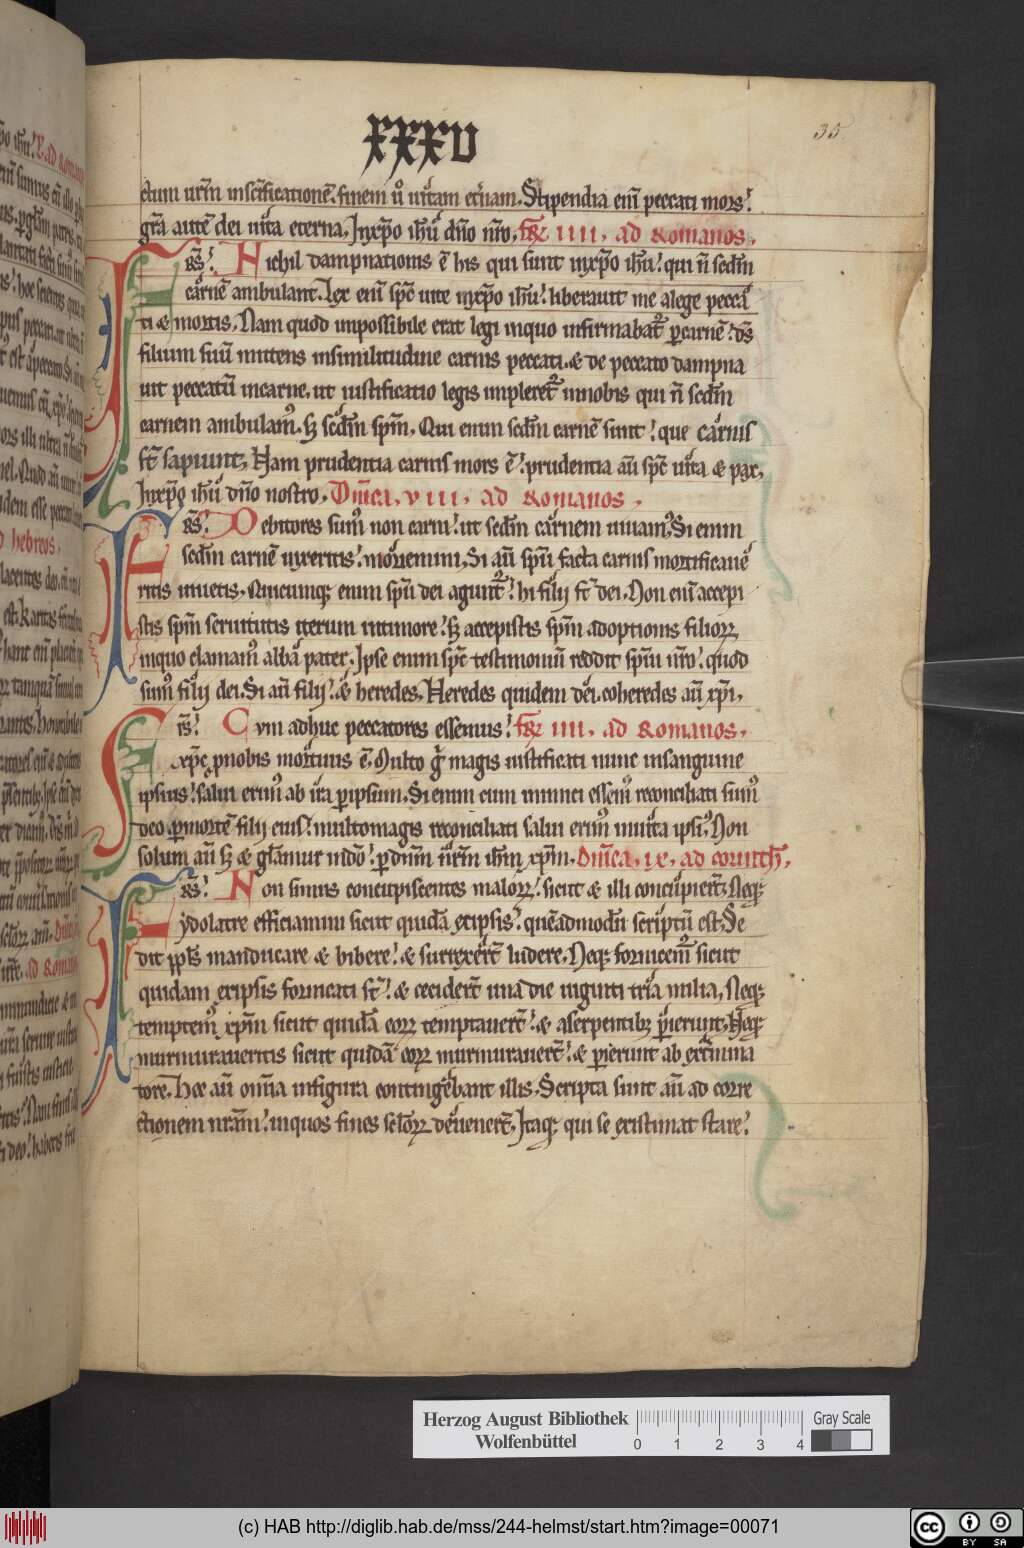 XXXV
35
ctum ur̄m in sc̄ificationē. finem u̾ uitam et̾nam. Stipendia eni̅ peccati mors.
gr̄a autē dei uita eterna. Inxp̄o ih̄u dn̄o nr̄o. fer̄ IIII. ad Romanos.
Fr̄s. Nichil dampnationis ē his qui sunt inxp̄o ih̄u. qui n̄ scd̄m
carnē ambulant. Lex eni̅ sp̄c uite inxp̄o ih̄u. liberauit me alege pecca
ti & mortis. Nam quod inpossibile erat legi inquo infirmabat᷑ p̱carnē. ds̄
filium suū mittens insimilitudine carnis peccati. & de peccato dampna
uit peccatū incarne. ut iustificatio legis impleret᷑ innobis qui n̄ scd̄m
carnem ambulam᷒. sꝫ scd̄m sp̄m. Qui enim scd̄m carnē sunt. que carnis
st̄ sapiunt. Nam prudentia carnis mors ē. prudentia au̅ sp̄c uita & pax.
Inxp̄o ih̄u dn̄o nostro. Dn̄ica. VIII. ad Romanos.
Fr̄s. Debitores sum᷒ non carni. ut scd̄m carnem uiuam᷒. Si enim
scd̄m carnē uixeritis. moriemini. Si au̅ sp̄u facta carnis mortificaue
ritis uiuetis. Quicumqꝫ enim sp̄u dei agunt᷑. hi filij st̄ dei. Non eni̅ accepi
stis sp̄m seruitutis iterum intimore. sꝫ accepistis sp̄m adoptionis filioꝝ
inquo clamam᷒ abba pater. Ipse enim sp̄c testimoniū reddit sp̄ui nr̄o. quod
sum᷒ filij dei. Si au̅ filij. & heredes. Heredes quidem dei. coheredes au̅ xp̄i.
Fr̄s. Cvm adhuc peccatores essemus. fer̄ IIII. ad Romanos.
xp̄c pnobis mortuus ē. Multo g̾ magis iustificati nunc insanguine
ipsius. salui erim᷒ ab ira p̱ipsum. Si enim cum inimici essem᷒ reconciliati sum᷒
deo p̱mortē filij eius. multomagis reconciliati salui erim᷒ inuita ipsi᷒. Non
solum au̅ sꝫ & gl̄amur indo̅. p̱ dn̄m nr̄m ih̄m xp̄m. Dn̄ica. IX. ad corinth̄.
Fr̄s. Non simus concupiscentes maloꝝ. sicut & illi concupier̄t. Neqꝫ
ydolatre efficiamini sicut quidā exipsis. quēadmodū scriptū est. Se
dit ppl̄s manducare & bibere. & surrexer̄t ludere. Neqꝫ fornicem᷒ sicut
quidam exipsis fornicati st̄. & cecider̄t una die uiginti tria milia. Neqꝫ
temptem᷒ xp̄m sicut quidā eoꝝ temptauer̄t. & aserpentibꝫ perierunt. Neqꝫ
murmuraueritis sicut quidā eoꝝ murmurauer̄t. & perierunt ab ext̄mina
tore. Hec au̅ omnia infigura contingebant illis. Scripta sunt au̅ ad corre
ctionem nr̄am. inquos fines scl̄oꝝ deuener̄t. Itaqꝫ qui se existimat stare.
Herzog August Bibliothek
Wolfenbüttel
0 1 2 3 4
Gray Scale
(c) HAB http://diglib.hab.de/mss/244-helmst/start.htm?image=00071
cc BY SA